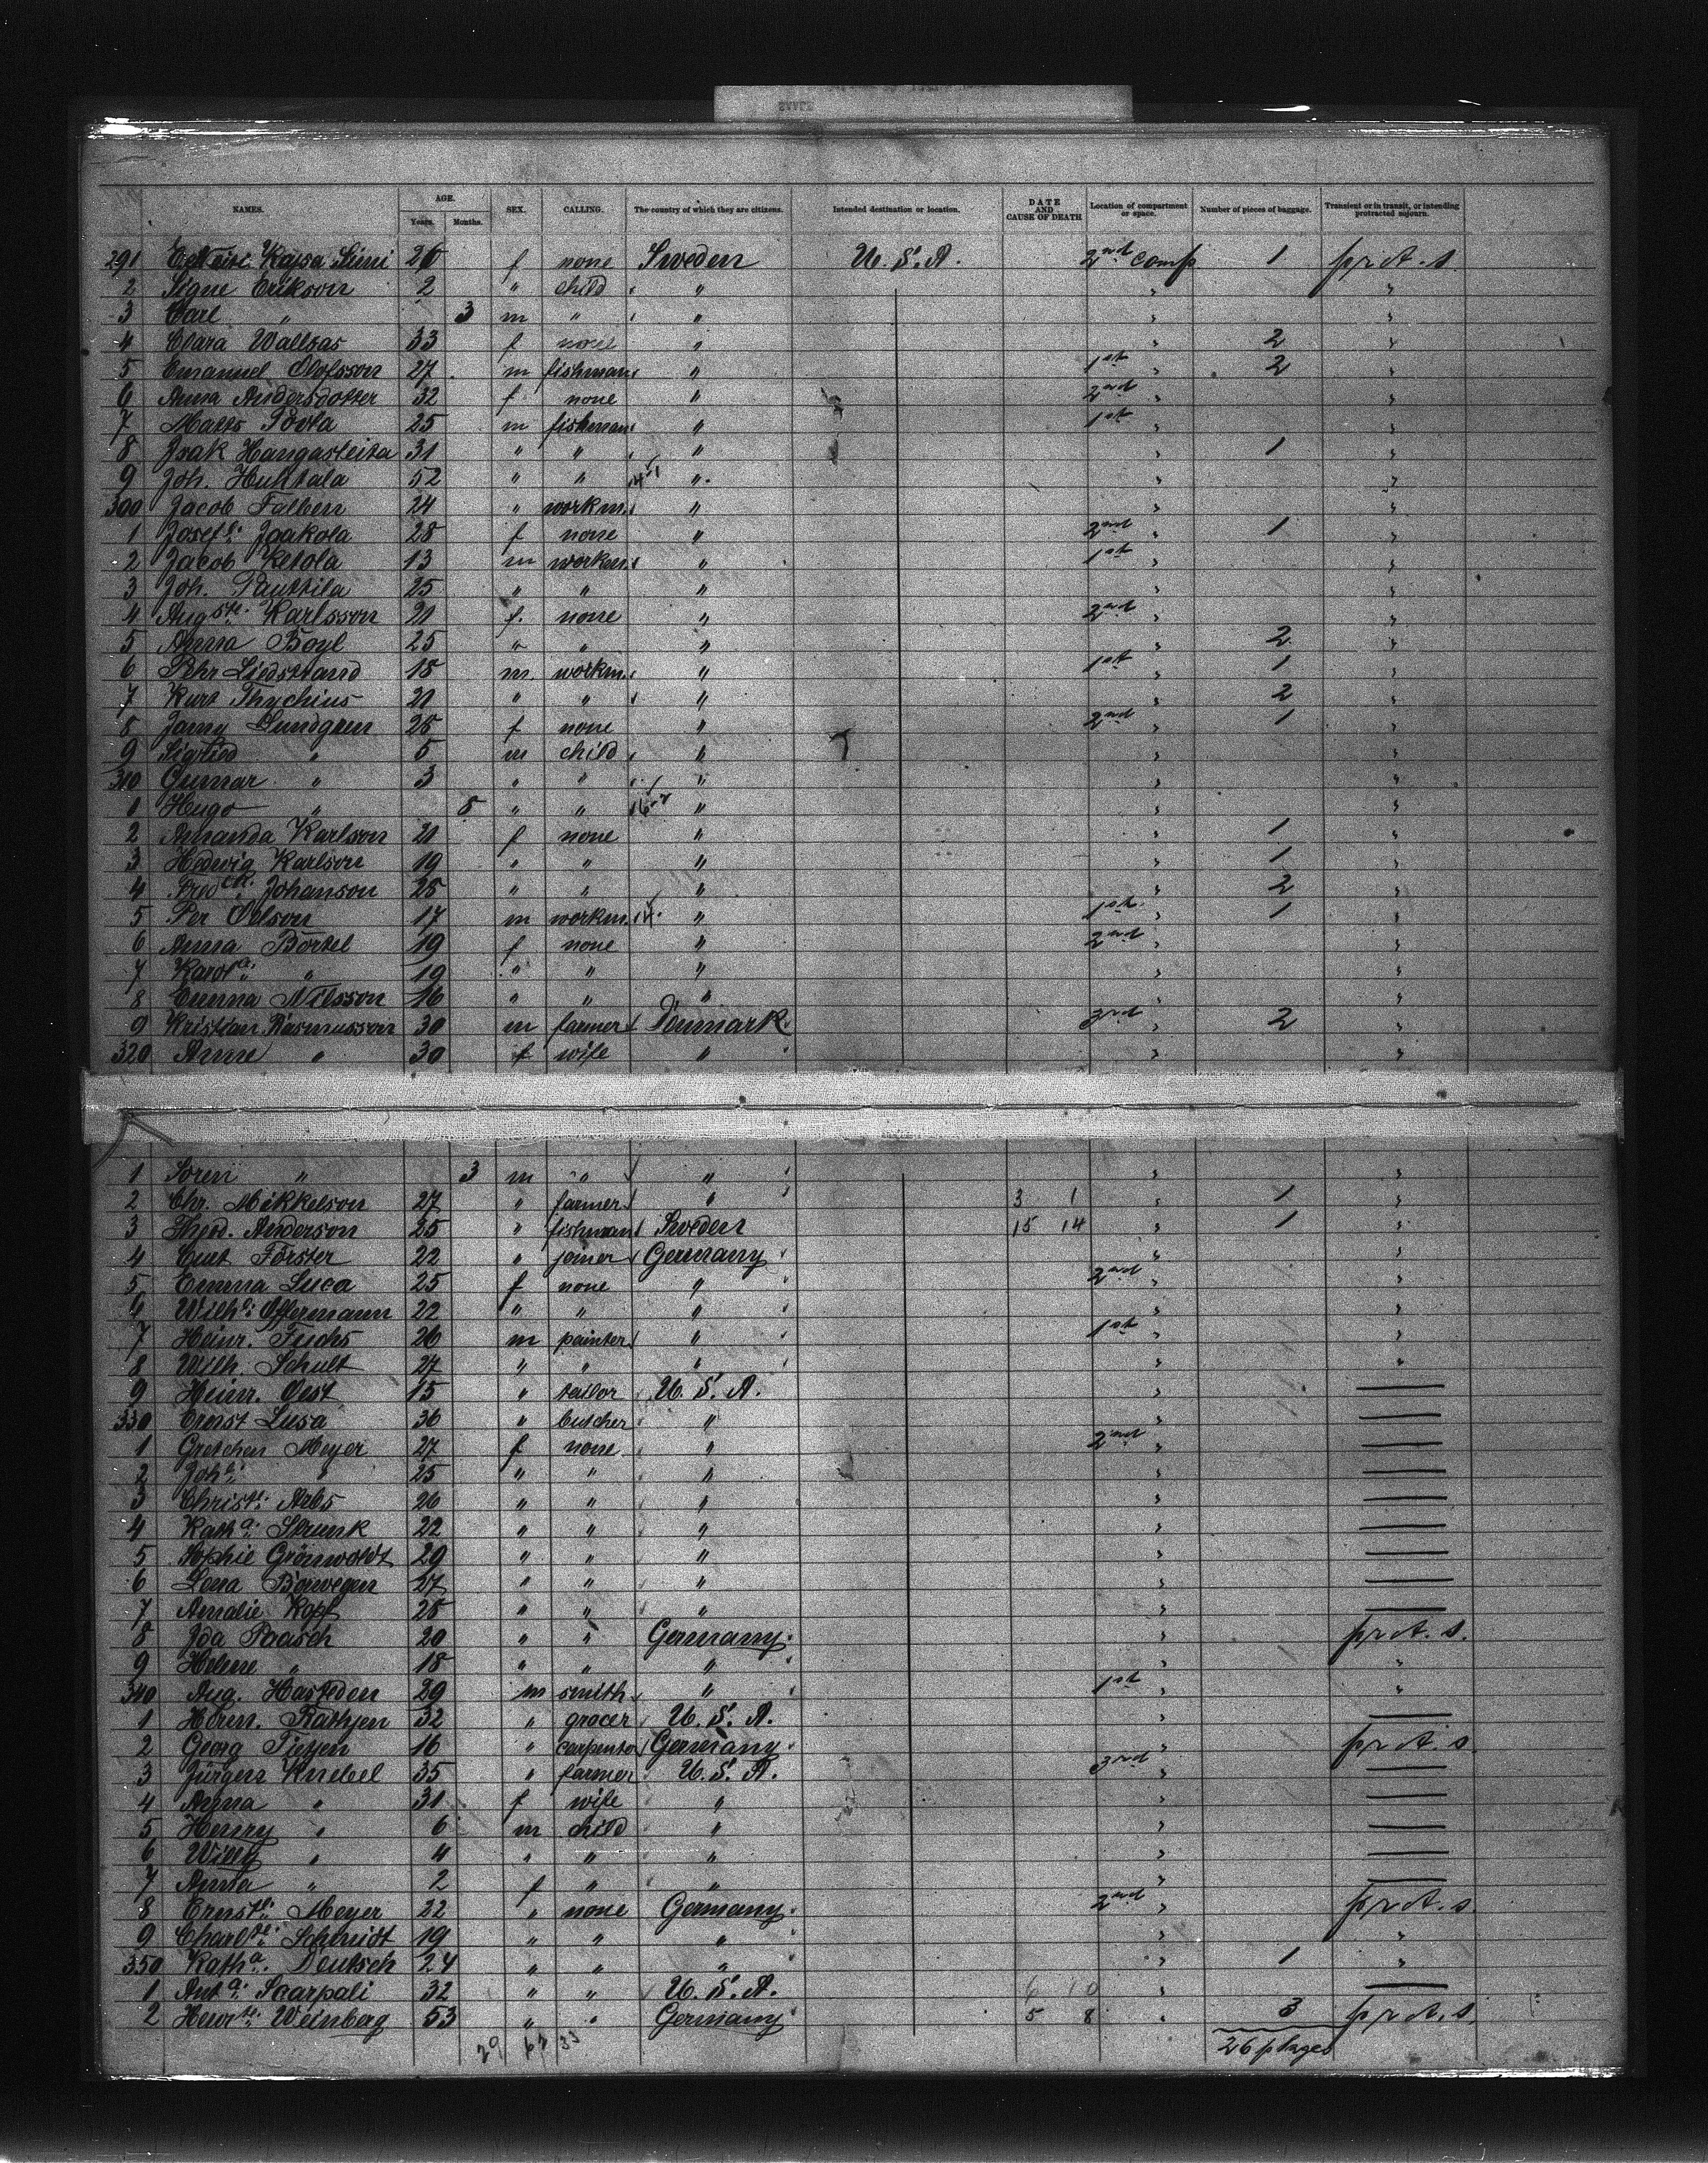 NAMES. AGE. Years. Months. SEX. CALLING. The country of which they are citizens. Intended destination or location. DATE AND CAUSE OF DEATH Location of compartment or space. Number of pieces of baggage. Transient or in transit, or intending protracted sojourn.
291 Kajsa Simi 26 f none Sweden U.S.A. 2nd comp 1 prot. s.
2 Signe Erikson 2 " child " " "
3 Carl " 3 m " " " "
4 Clara Wallsas 33 f none " " 2 "
5 Emanuel Olofsson 27 m fishman " 1st " 2 "
6 Anna Andersdotter 32 f none " 2nd " "
7 Matts Povla 25 m fishman " 1st " "
8 Isak Hangasleita 31 " " " " 1 "
9 Joh. Huhtala 52 " " " " "
300 Jacob Falben 24 " workm. " " "
1 Josefa: Jaakola 28 f none " 2nd " 1 "
2 Jacob Ketola 13 m workm. " 1st " "
3 Joh. Panttila 25 " " " " "
4 Augste: Karlsson 21 f. none " 2nd " "
5 Anna Boyl 25 " " " " 2 "
6 Pehr Liedstrand 18 m. workm. " 1st " 1 "
7 Kurt Thychius 21 " " " " 2 "
8 Jamy Lundgren 28 f none " 2nd " 1 "
9 Sigried " 5 m child " " "
310 Gunnar " 3 " " " " "
1 Hugo " 8 " " " " "
2 Amanda Karlson 21 f none " " 1 "
3 Hedwig Karlson 19 " " " " 1 "
4 Johanson 28 " " " " 2 "
5 Per Ohlson 17 m workm. 14 " 1st " 1 "
6 Anna Bortel 19 f none " 2nd " "
7 Karola: " 19 " " " " "
8 Emma Nilsson 16 " " " " "
9 Kristian Rasmusson 30 m farmer Denmark 3rd " 2 "
320 Anne " 30 f wife " " "
1 Soren " 3 m " " " "
2 Chr. Mikkelson 27 " farmer " 3 1 " 1 "
3 Theod. Anderson 25 " fishman Sweden 15 14 " 1 "
4 Curt Förster 22 " joiner Germany " "
5 Emma Luca 25 f none " 2nd " "
6 Wilhe: Offermann 22 " " " " "
7 Heinr. Fuchs 26 m painter " 1st " "
8 Wilh. Schult 27 " " " " "
9 Heinr. Oest 15 " tailor U.S.A. " —
330 Ernst Lusa 36 " butcher " " —
1 Gretchen Meyer 27 f none " 2nd " —
2 Johe: " 25 " " " " —
3 Christe: Arbs 26 " " " " —
4 Katha: Strunk 22 " " " " —
5 Sophie Grönwoldt 29 " " " " —
6 Lena Bönwegen 27 " " " " —
7 Amalie Kopf 28 " " " " —
8 Ida Paasch 20 " " Germany " prot. s.
9 Helene " 18 " " " " "
340 Aug. Hasteden 29 m smith " 1st " "
1 Herm. Rathjen 32 " grocer U.S.A. " —
2 Georg Tietjen 16 " carpenter Germany " prot. s.
3 Jürgen Knebel 35 " farmer U.S.A. 3rd " —
4 Anna " 31 f wife " " —
5 Henry " 6 m child " " —
6 Willy " 4 " " " " —
7 Anna " 2 f " " " —
8 Ernste: Meyer 22 " none Germany 2nd " prot. s.
9 Charlte: Schmidt 19 " " " " "
350 Katha: Deutsch 24 " " " " 1 "
1 Anta: Scarpali 32 " " U.S.A. 6 10 " —
2 Henrte: Weinberg 53 " " Germany 5 8 " 3 prot. s.
29 62 33 26 plages